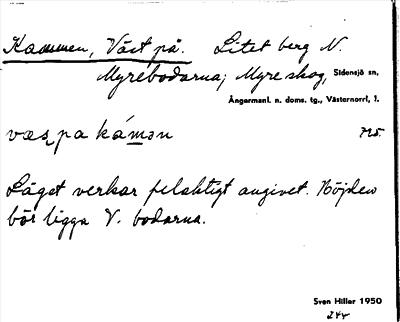 Kammen, Väst på. Litet berg N.
Myrebodarna; Myre skog, Sidensjö sn,
Ångermanl. n. doms. tg., Västernorrl, l.
væs pa ká̱mən
Läget verkar felaktigt angivet. Höjden
bör ligga V. bodarna.
Sven Hiller 1950
244